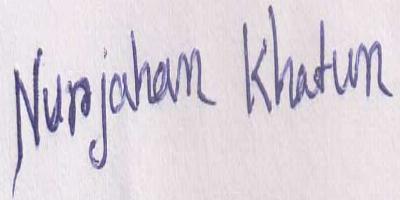 Nurjahan Khatun